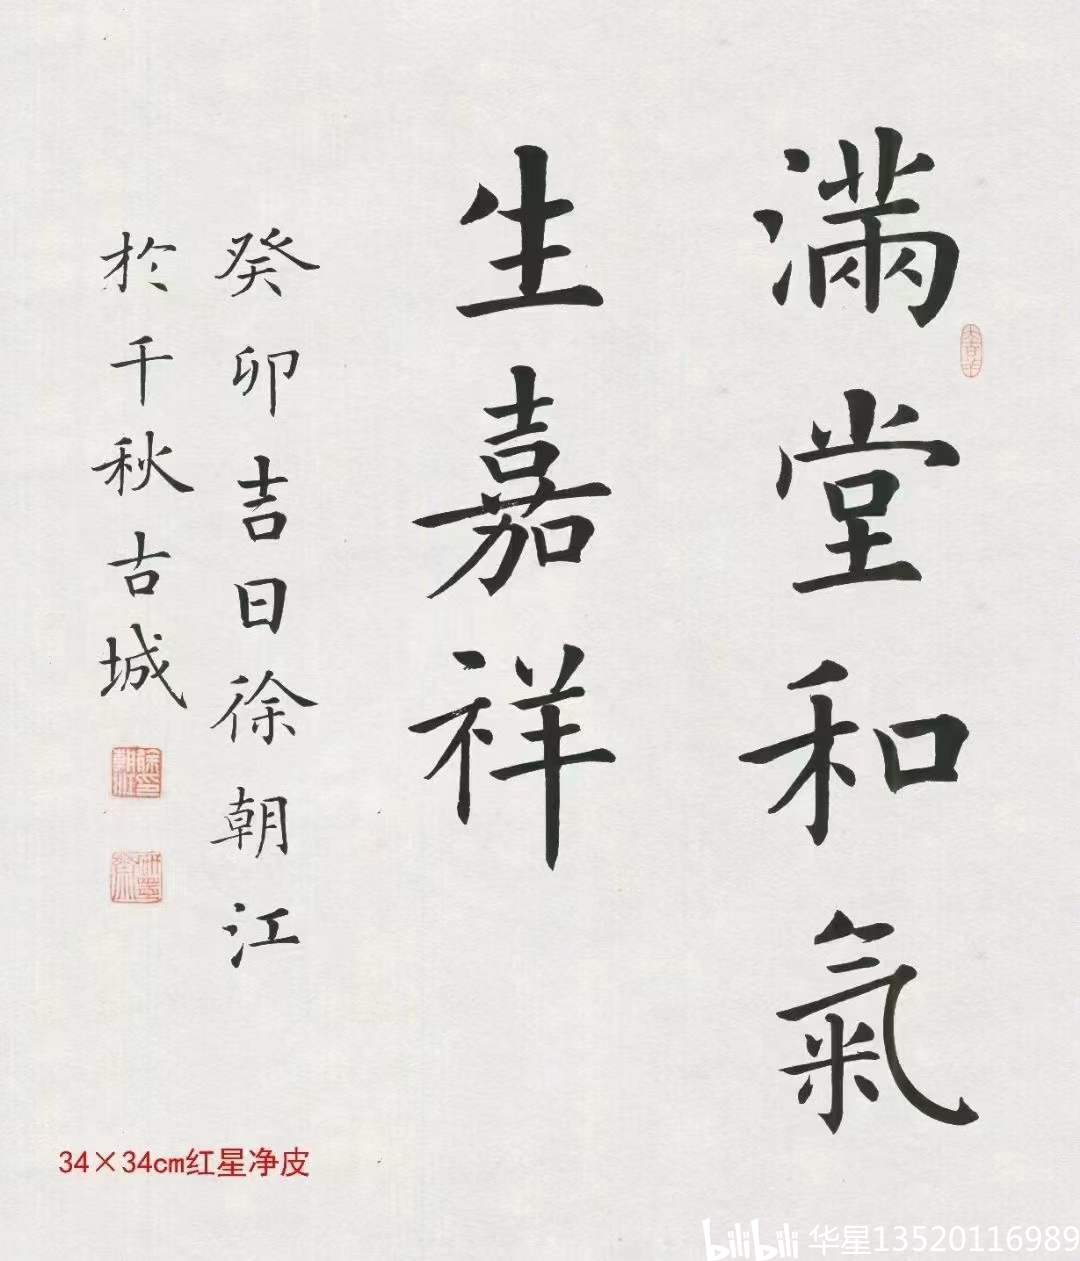 滿堂和氣
生嘉祥
癸卯吉日徐朝江
於千秋古城
34×34cm红星净皮
bilibili 华星13520116989